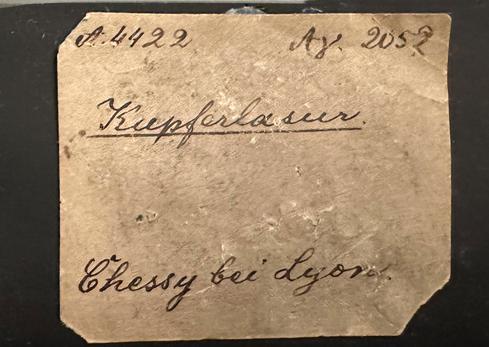 A. 4422 Ag. 2052
Kupferlasur.
Chessy bei Lyon.